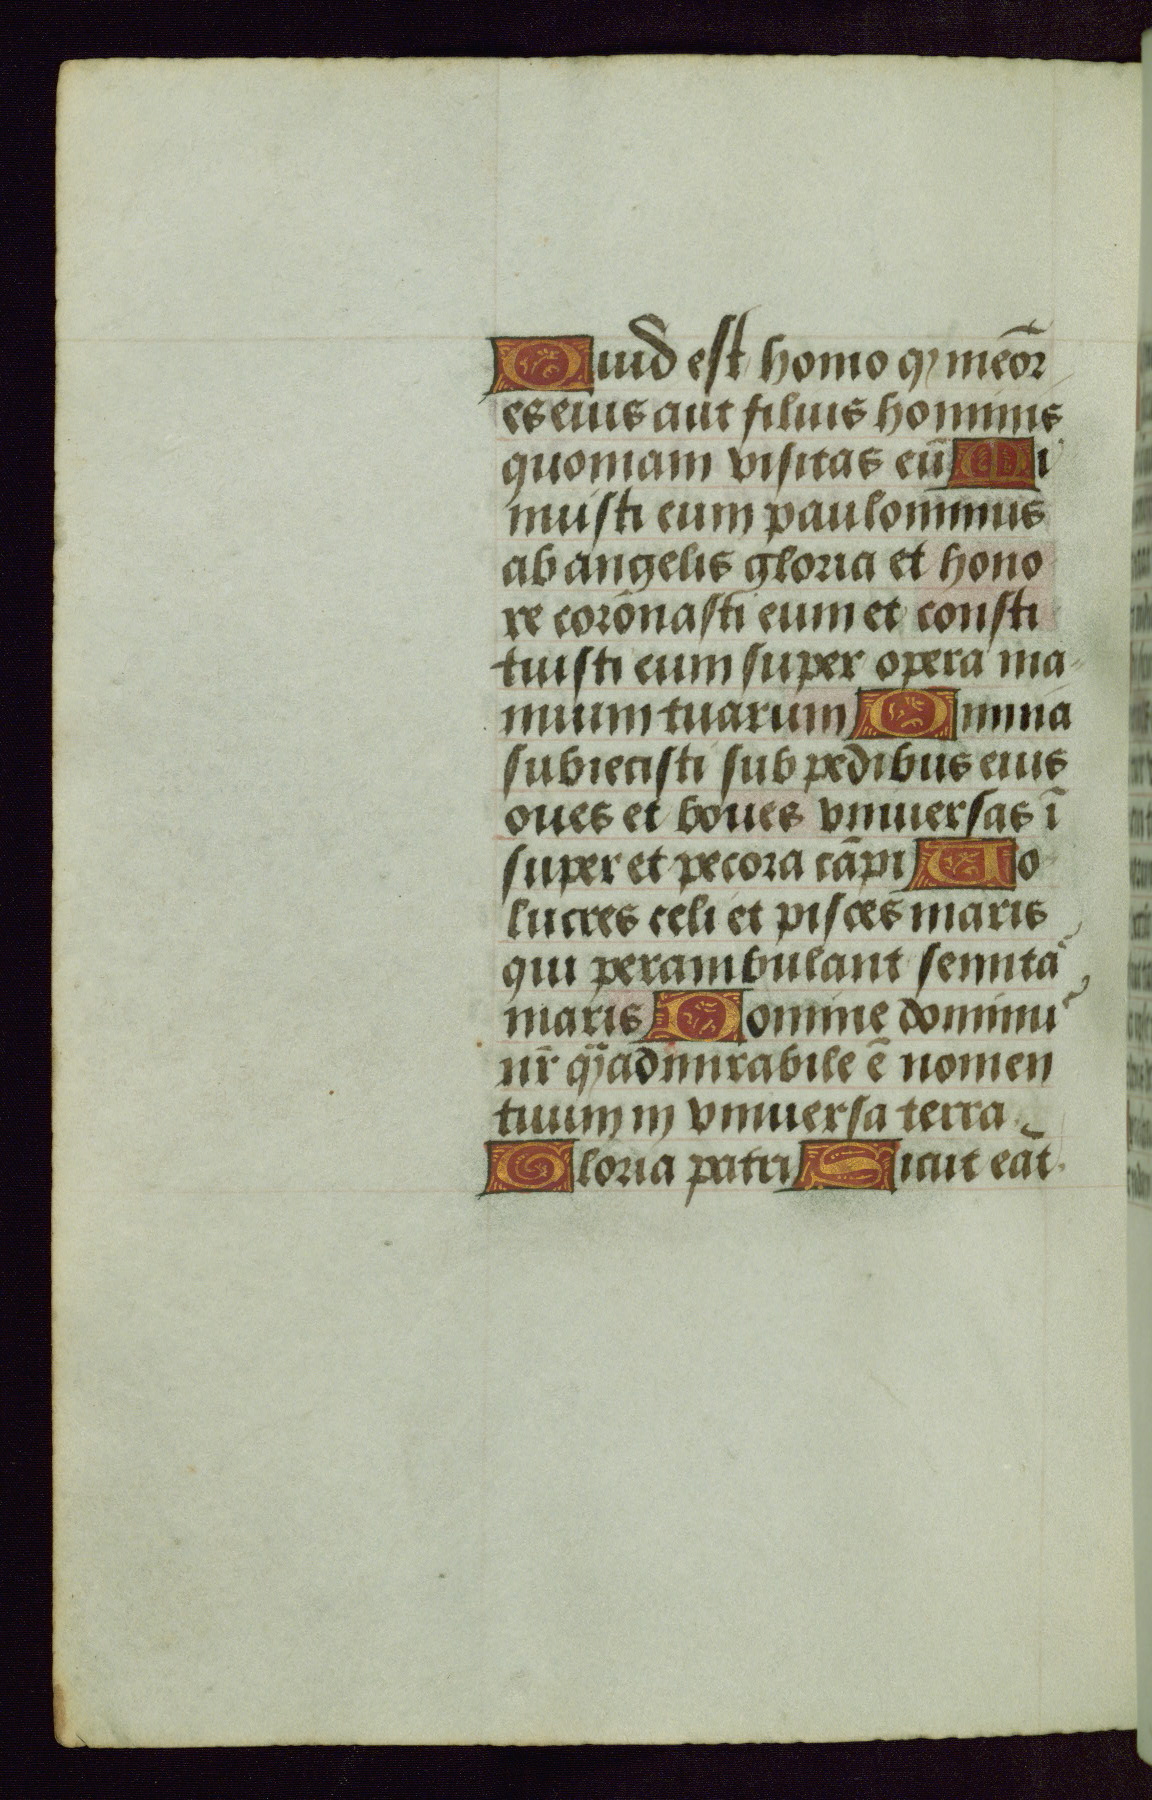 Quid est homo qꝫ meōr
es eius aut filius hominis
quoniam visitas eū Mi
nuisti eum paulominus
ab angelis gloria et hono
re corōnasti eum et consti
tuisti eum super opera ma-
nuum tuarum Omnia
subiecisti sub pedibus eius
oues et boues vniuersas ī
super et pecora cāpi Uo
lucres celi et pisces maris
qui perambulant semitā
maris Domine dominu
nr̄ qꝫ admirabile ē nomen
tuum in vniuersa terra
Gloria patri Sicut eāt.